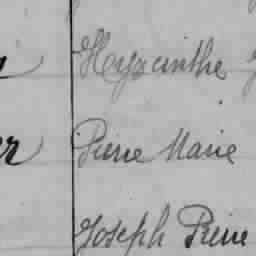 Hyacinthe
Pierre Marie
Joseph Pierre